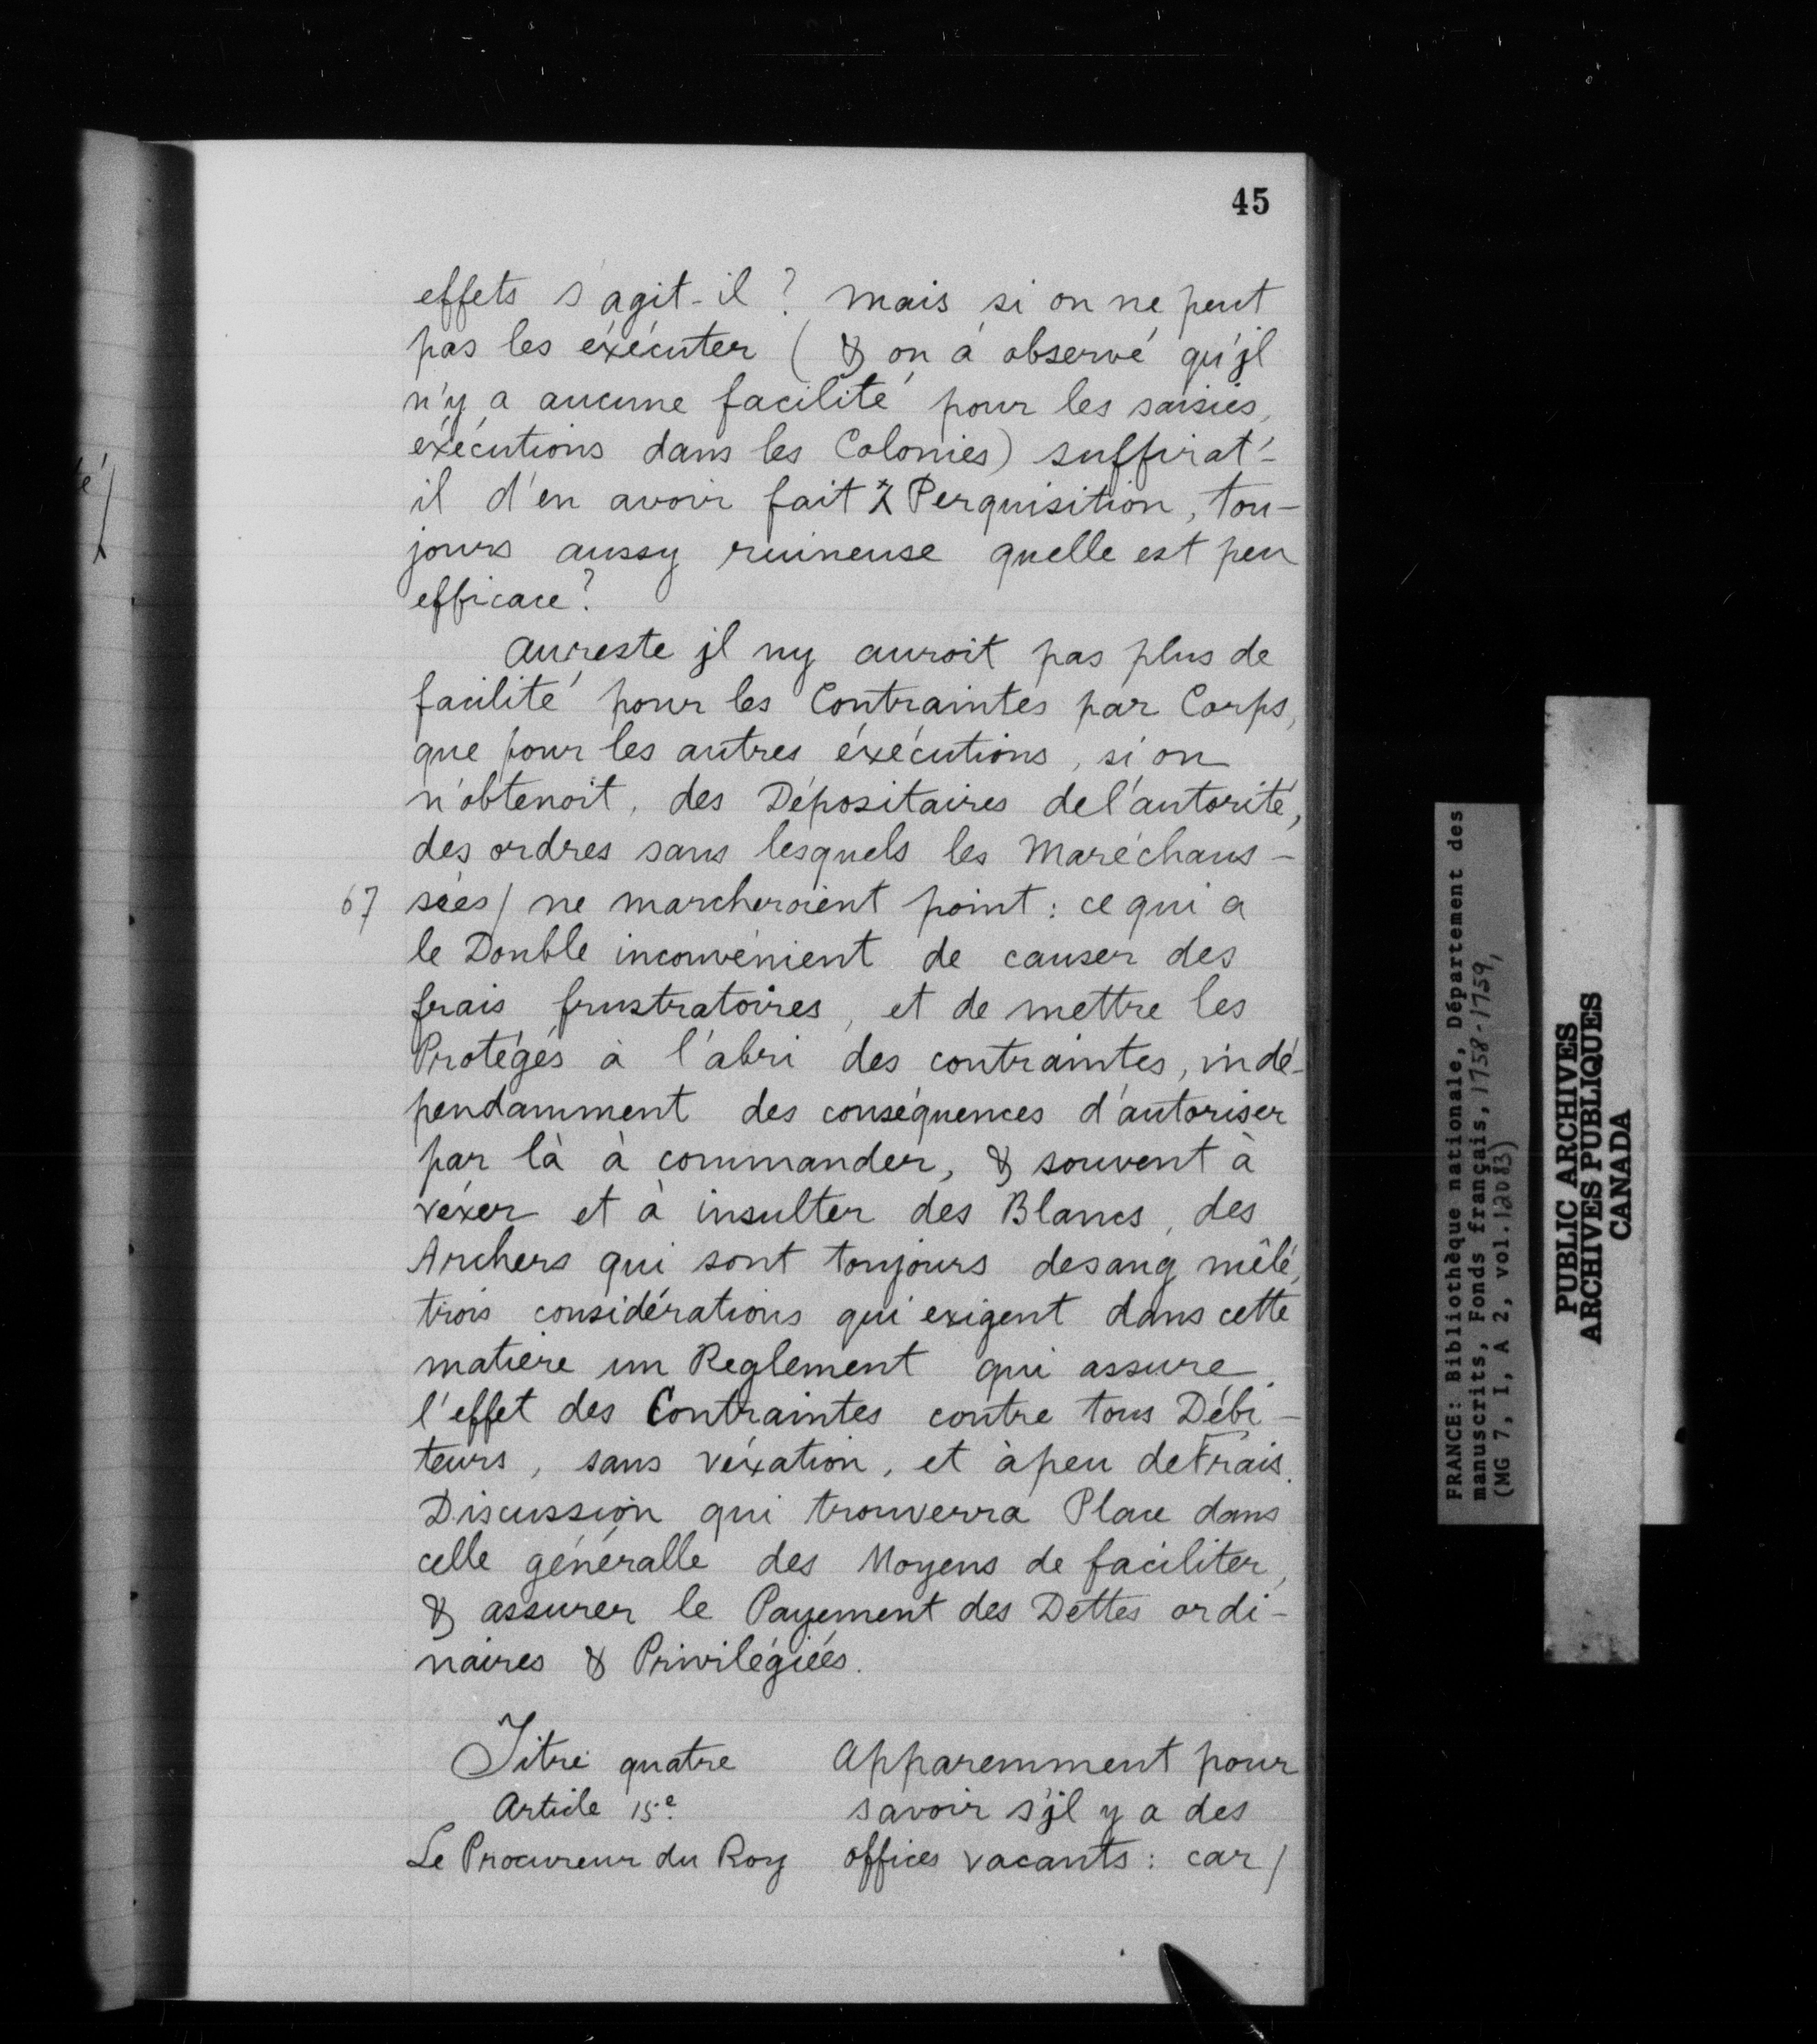 45
effets s'agit-il ? mais si on ne peut
pas les éxécuter ( & on a observé qu'jl
n'y a aucune facilité pour les saisies,
éxécutions dans les Colonies) suffirat'-
il d'en avoir fait Perquisition, tou-
jours aussy ruineuse quelle est peu
efficace ?
Aureste jl ny auroit pas plus de
facilité pour les Contraintes par Corps,
que pour les autres éxécutions, si on
n'obtenoit, des Dépositaires del'autorité,
des ordres sans lesquels les Maréchaus-
67 sées / ne marcheroient point : ce qui a
le Double inconvénient de causer des
frais frustratoires, et de mettre les
Protégés à l'abri des contraintes, indé-
pendamment des conséquences d'autoriser
par là à commander, & souvent à
véxer et à insulter des Blancs, des
Archers qui sont toujours desang mêlé,
trois considérations qui exigent dans cette
matiere un Reglement qui assure
l'effet des Contraintes contre tous Débi-
teurs, sans véxation, et àpeu deFrais.
Discussion qui trouverra Place dans
celle généralle des Moyens de faciliter,
& assurer le Payement des Dettes ordi-
naires & Privilégiées.
Titre quatre
Article 15e.
Le Procureur du Roy
Apparemment pour
savoir s'jl y a des
offices vacants : car /
FRANCE: Bibliothèque nationale, Département des
manuscrits, Fonds français, 1758-1759,
(MG 7, I, A 2, vol. 12083)
PUBLIC ARCHIVES
ARCHIVES PUBLIQUES
CANADA